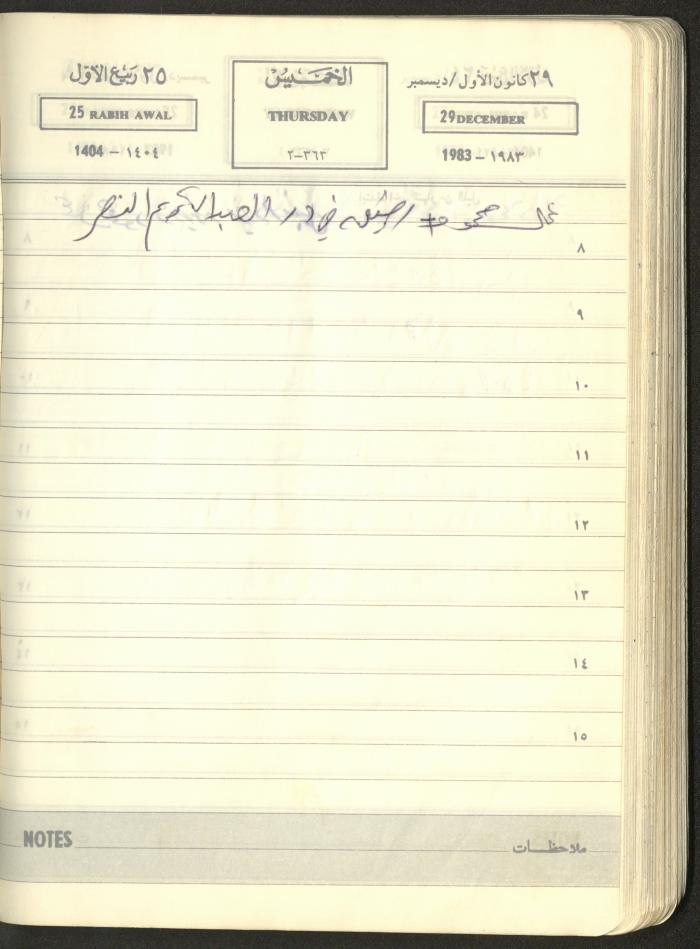 ٢٩ كانون الأول/ديسمبر
29 DECEMBER
1983 - ١٩٨٣
الخميس
THURSDAY
٢-٣٦٣
٢٥ ربيع الأول
25 RABIH AWAL
1404 - ١٤٠٤
محمود + في دار العبد الكريم
٨
٩
١٠
١١
١٢
١٣
١٤
١٥
NOTES ملاحظات